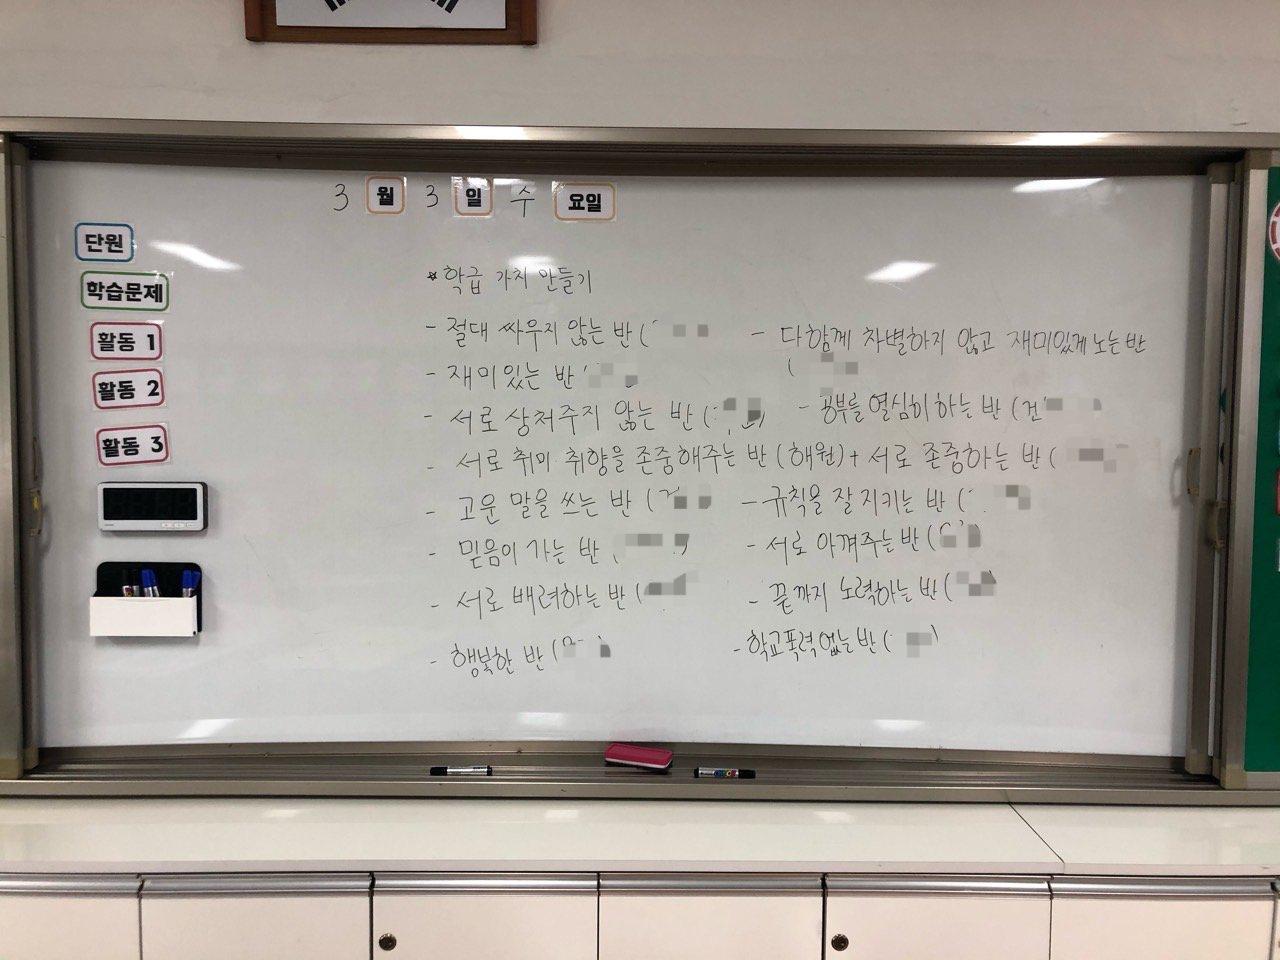 3 월 3 일 수 요일
단원
학습문제
활동 1
활동 2
활동 3
* 학급 가치 만들기
- 절대 싸우지 않는 반 (
- 재미있는 반
- 서로 상처주지 않는 반 ( )
- 서로 취미 취향을 존중해주는 반 (해원) + 서로 존중하는 반 (
- 고운 말을 쓰는 반 (
- 믿음이 가는 반 ( )
- 서로 배려하는 반 (
- 행복한 반 ( )
- 다함께 차별하지 않고 재미있게 노는 반
(
- 공부를 열심히 하는 반 (건 )
- 규칙을 잘 지키는 반 (
- 서로 아껴주는 반 ( )
- 끝까지 노력하는 반 ( )
- 학교폭력없는 반 ( )